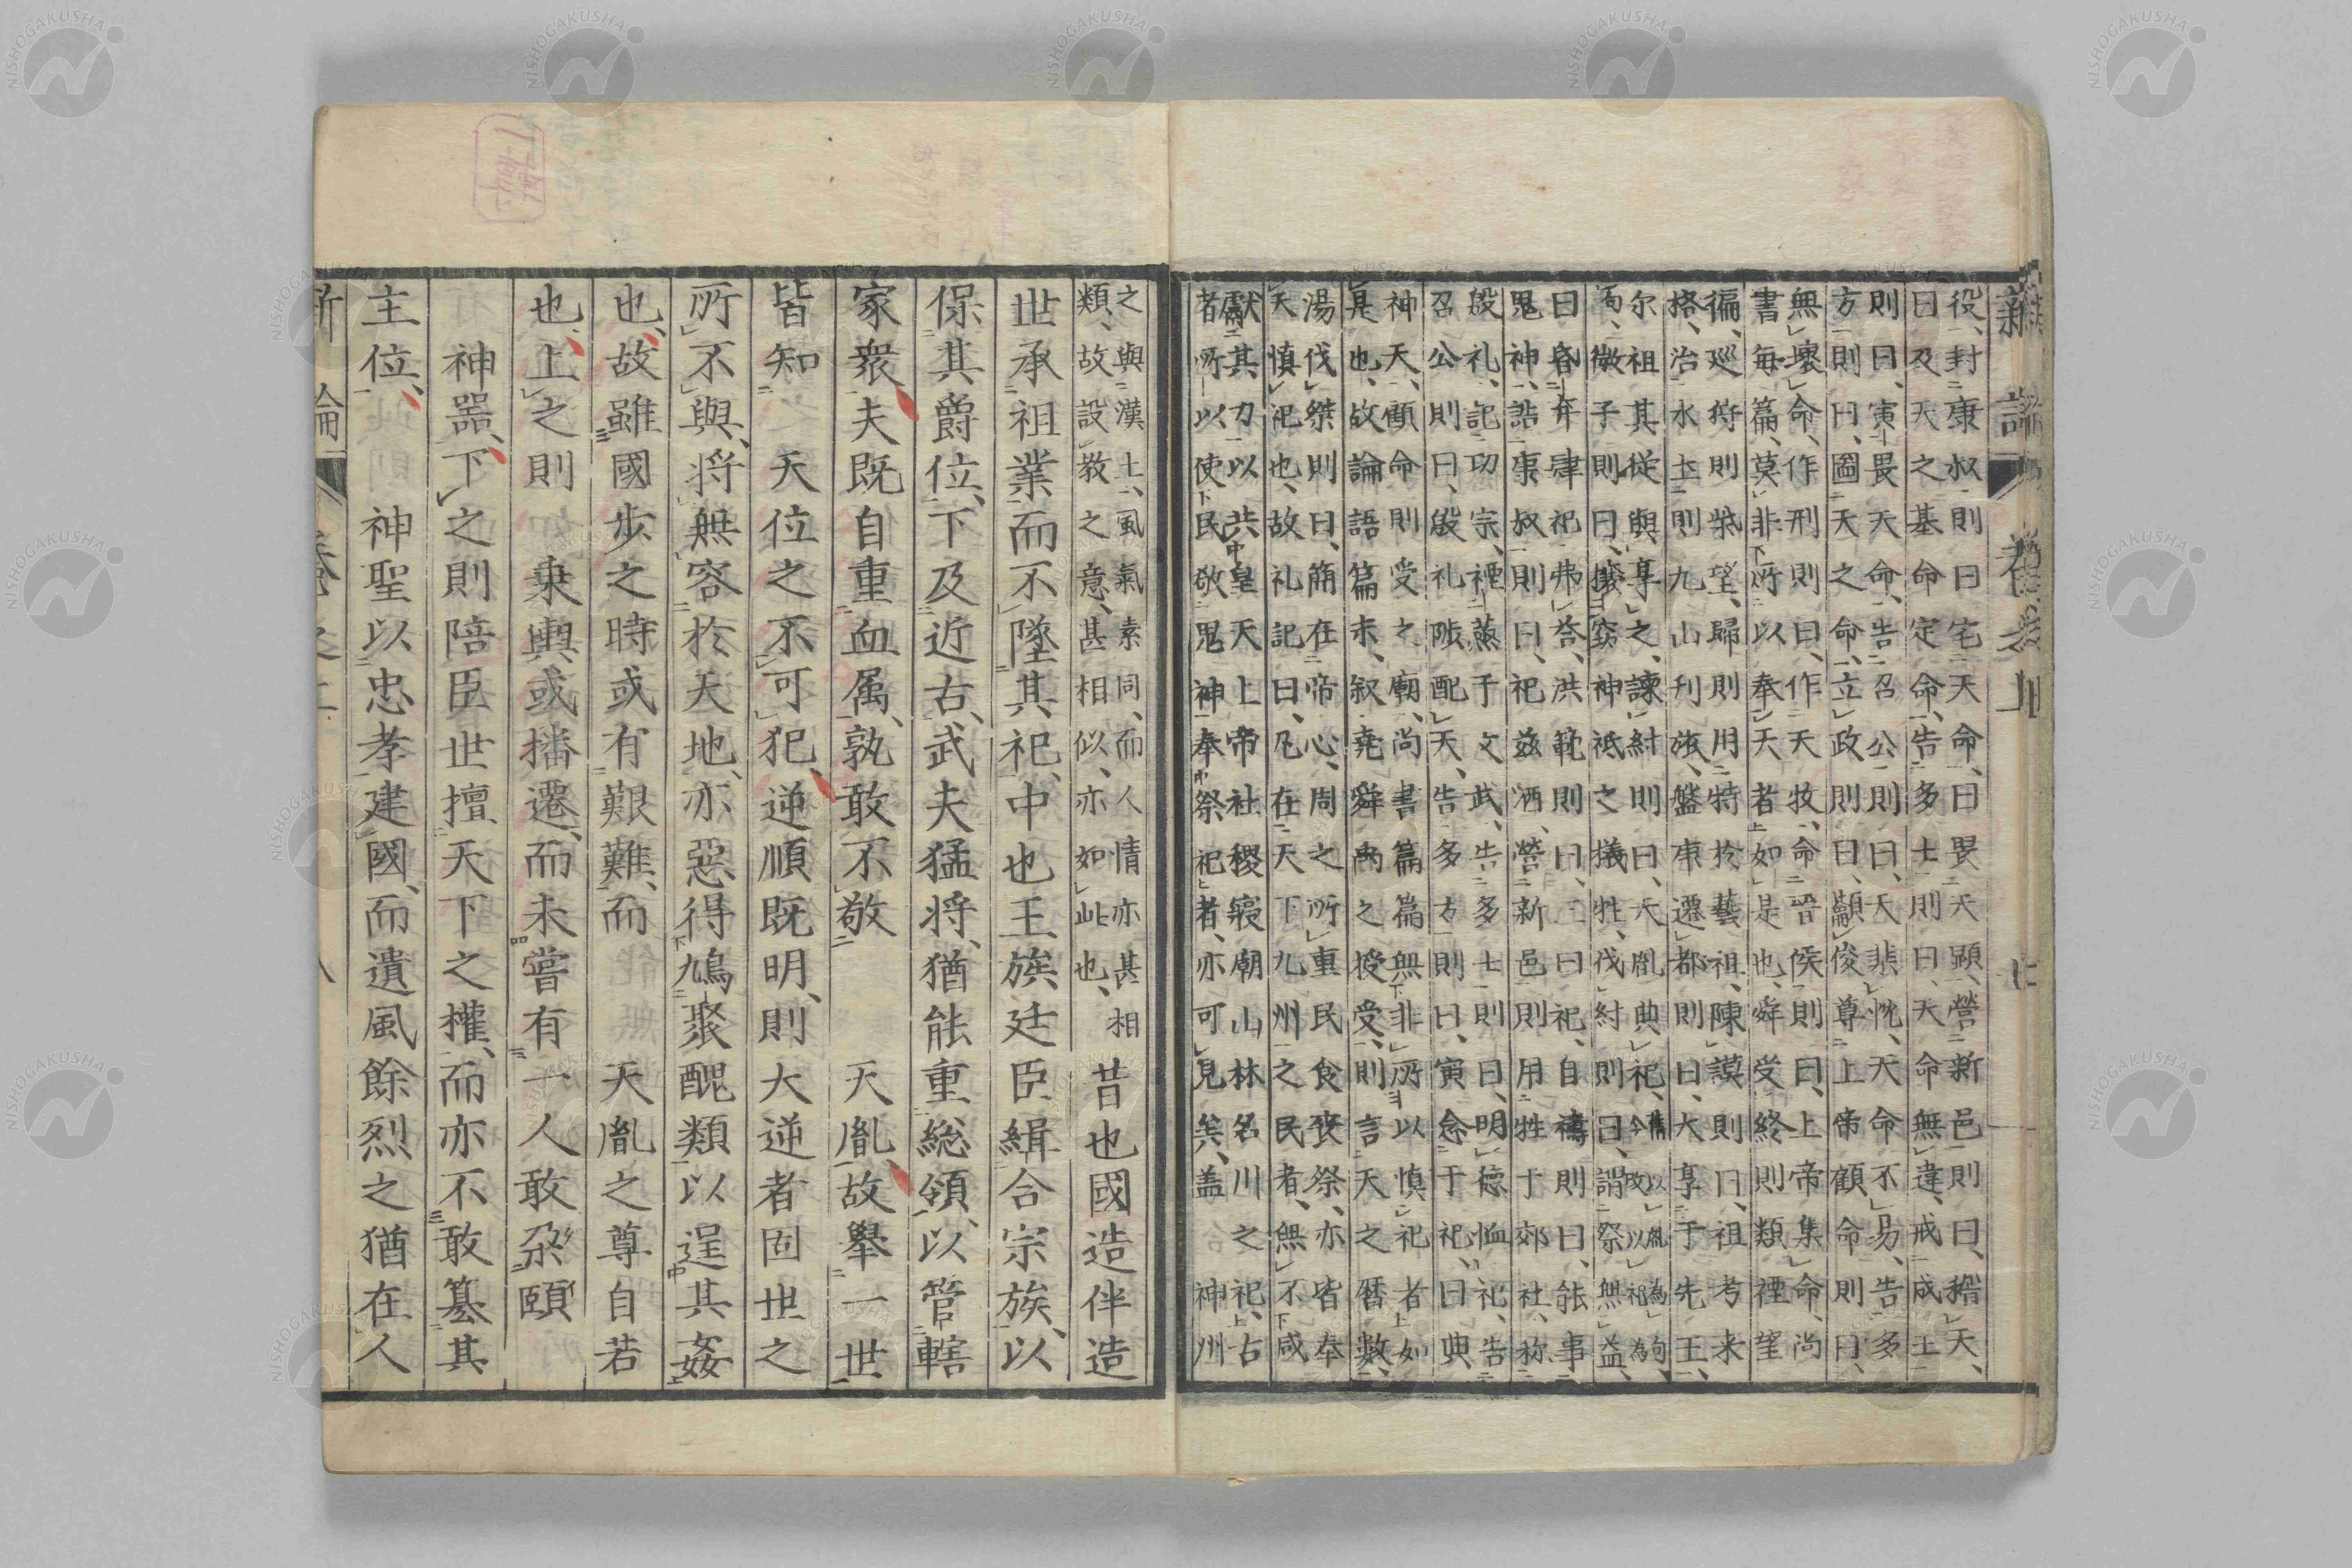 新論 卷之上 七
役、封康叔則曰宅天命、曰畏天顯、營新邑則曰、稽天、
曰及天之基命定命、告多士則曰、天命無違、戒成王
則曰、寅畏天命、告召公則曰、天棐忱、天命不易、告多
方則曰、圖天之命、立政則曰、顧俊尊上帝、顧命則曰、
無壞命、作刑則曰、作天牧、命晋侯則曰、上帝集命、尚
書毎篇、莫非所以奉天者如是也、舜受終則類禋望
徧、巡狩則柴望、歸則用特於藝祖、陳謨則曰、祖考来
格、治水土則九山刋旅、盤庚遷都則曰、大享于先王、
尓祖其從與享之、諫紂則曰、天胤典祀、舊以胤為句今改以祀為
微子則曰、攘竊神祇之犠牲、伐紂則曰、謂祭無益、
曰昏弃肆祀弗荅、洪範則曰、三曰祀、自禱則曰、能事
鬼神、誥康叔則曰、祀兹酒、營新邑則用牲于郊社、称
殷礼、記功宗、禋烝于文武、告多士則曰、明德恤祀、告
召公則曰、殷礼陟配天、告多方則曰、寅念于祀、曰典
神天、顧命則受之廟、尚書篇篇無非所以慎祀者如
是也、故論語篇末、叙堯舜禹之授受、則言天之暦數、
湯伐桀則曰、簡在帝心、周之所重民食喪祭、亦皆奉
天慎祀也、故礼記曰、凡在天下九州之民者、無不咸
獻其力以共皇天上帝社稷寝廟山林名川之祀、古
者所以使民敬鬼神奉祭祀者、亦可見矣、盖 神州
之與漢土、風氣素同、而人情亦甚相
類、故設教之意、甚相似、亦如此也、
昔也國造伴造
世承祖業而不墜其祀、中也王族廷臣緝合宗族、以
保其爵位、下及近古、武夫猛将、猶能重総領、以管轄
家衆、夫既自重血属、孰敢不敬 天胤、故舉一世
皆知 天位之不可犯、逆順既明、則大逆者固世之
所不與、将無容於天地、亦惡得鳩聚醜類以逞其姦
也、故雖國步之時或有艱難、而 天胤之尊自若
也、上之則 乗輿或播遷、而未嘗有一人敢朶頤
神器、下之則陪臣世擅天下之權、而亦不敢簒其
主位、 神聖以忠孝建國、而遺風餘烈之猶在人
新論 卷之上 八